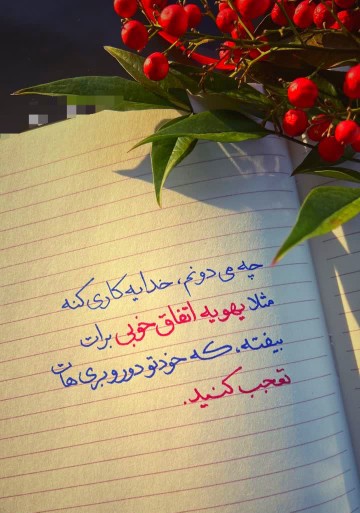 چه می دونم، خدا یه کاری کنه
مثلا یهو یه اتفاق خوبی برات
بیفته، که خودتو دوروبری هات
تعجب کنید.